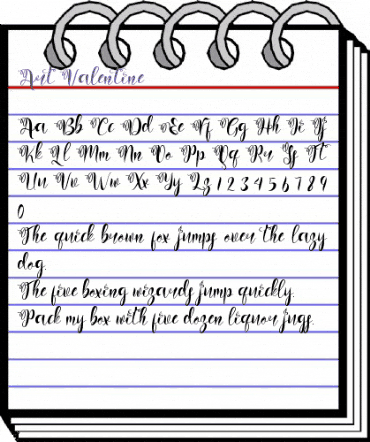 Avit Valentine
Aa Bb Cc Dd Ee Ff Gg Hh Ii Jj
Kk Ll Mm Nn Oo Pp Qq Rr Ss Tt
Uu Vv Ww Xx Yy Zz 1 2 3 4 5 6 7 8 9
0
The quick brown fox jumps over the lazy
dog.
The five boxing wizards jump quickly.
Pack my box with five dozen liquor jugs.